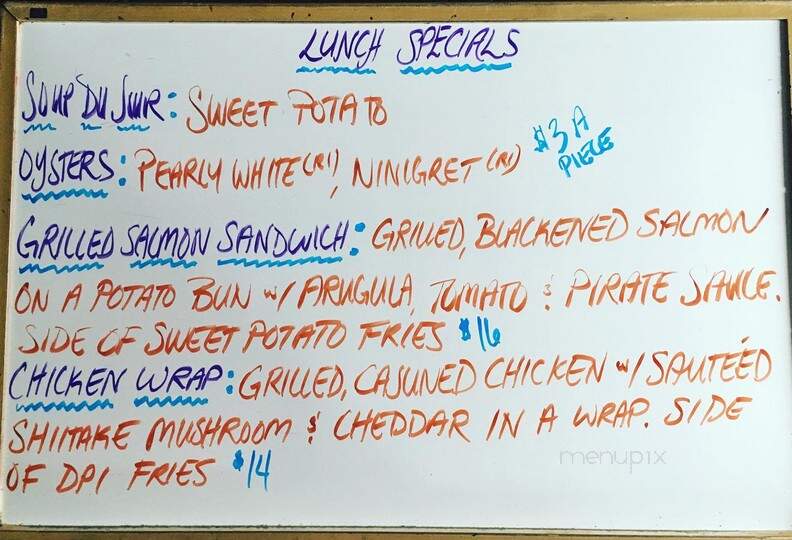 LUNCH SPECIALS
SOUP DU JOUR: SWEET POTATO
OYSTERS: PEARLY WHITE (RI), NINIGRET (RI) $3 A
PIECE
GRILLED SALMON SANDWICH: GRILLED, BLACKENED SALMON
ON A POTATO BUN W/ ARUGULA, TOMATO & PIRATE SAUCE.
SIDE OF SWEET POTATO FRIES $16
CHICKEN WRAP: GRILLED, CAJUNED CHICKEN W/ SAUTÉED
SHIITAKE MUSHROOM & CHEDDAR IN A WRAP. SIDE
OF DPI FRIES $14
menupix